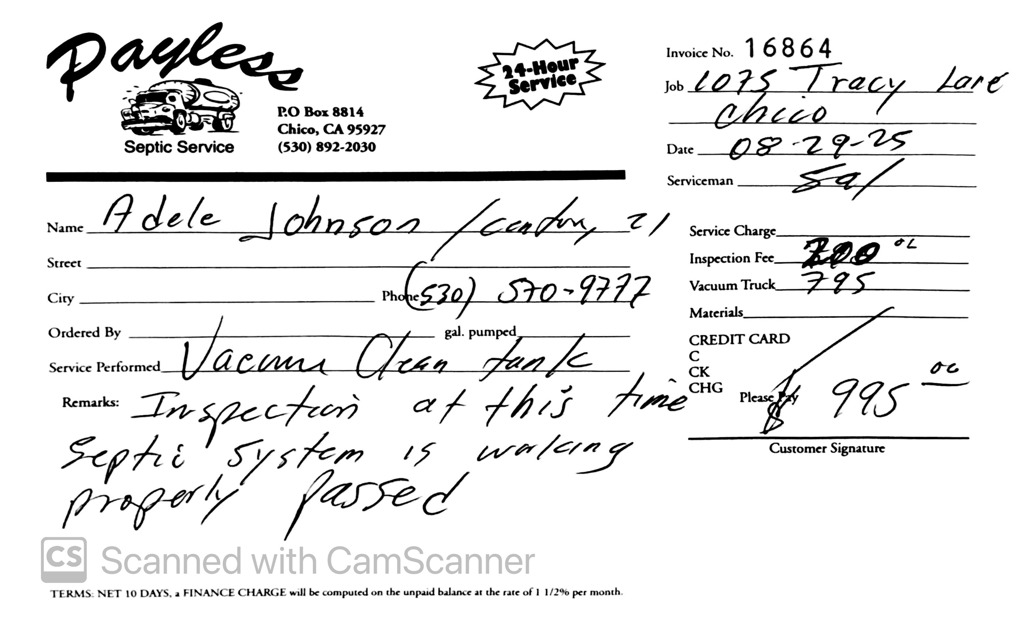 Payless
Septic Service
P.O Box 8814
Chico, CA 95927
(530) 892-2030
24-Hour
Service
Invoice No. 16864
Job 1075 Tracy Lane
Chico
Date 08-29-25
Serviceman Sal
Name Adele Johnson / Century 21
Street
City Phone (530) 570-9777
Ordered By gal. pumped
Service Performed Vacuum Clean tank
Remarks: Inspection at this time
Septic system is working
properly passed
Service Charge
Inspection Fee 200
Vacuum Truck 795
Materials
CREDIT CARD
C
CK
CHG
Please Pay $ 995 00
Customer Signature
CS Scanned with CamScanner
TERMS: NET 10 DAYS, a FINANCE CHARGE will be computed on the unpaid balance at the rate of 1 1/2% per month.